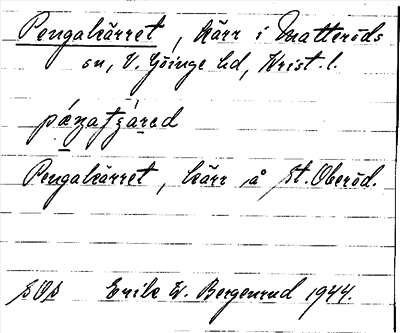 Pengakärret, kärr i Matteröds
sn, V. Göinge hd, Krist. l.
Pengakärret, kärr å St. Oberöd.
SOs Erik W. Bergenrud 1944.